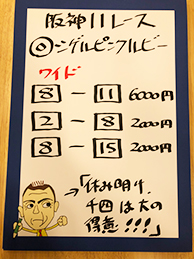 阪神11レース
◎シゲルピンクルビー
ワイド
8 － 11 6000円
2 － 8 2000円
8 － 15 2000円
→「休み明け、
千四は大の
得意!!!」